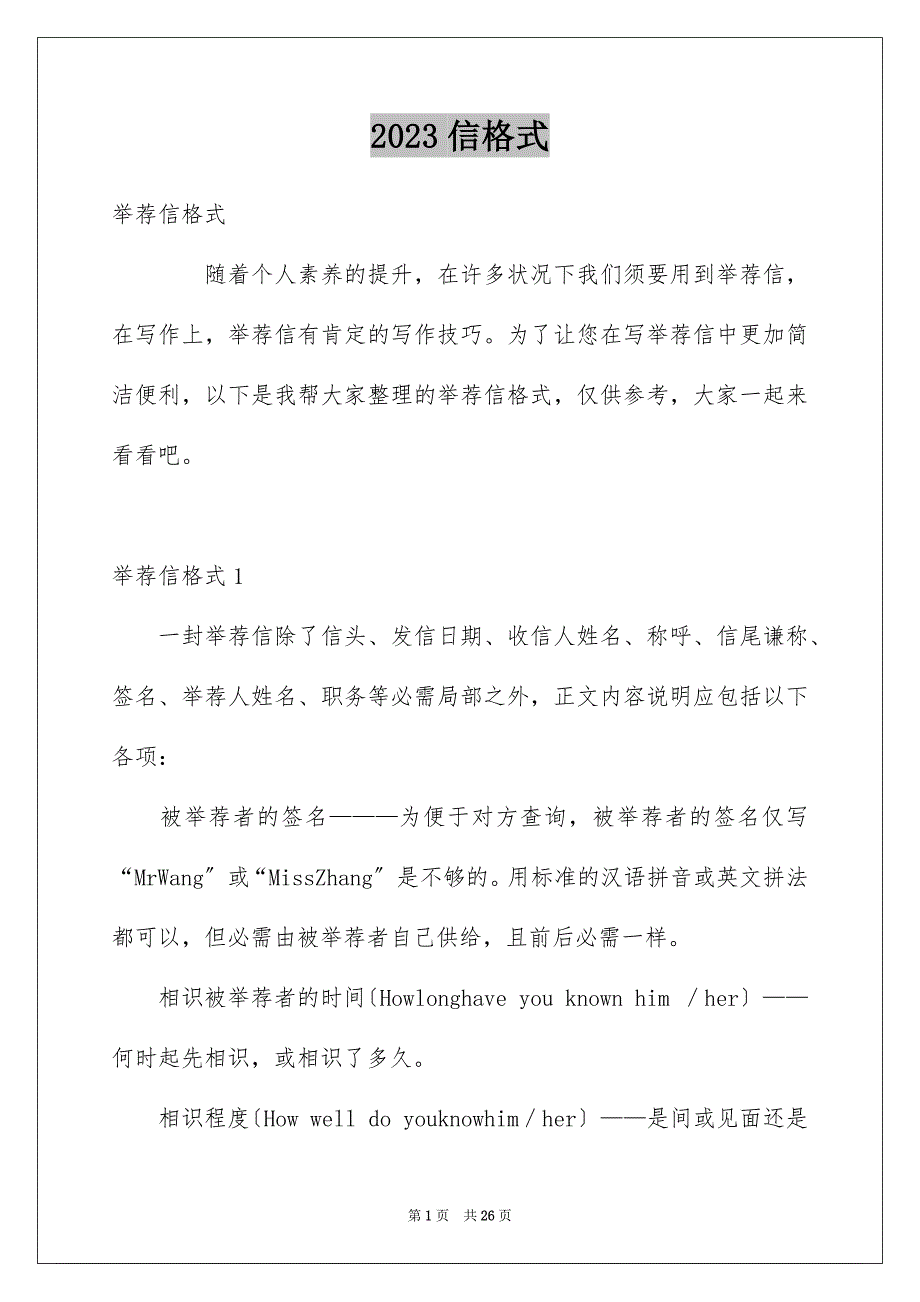 2023信格式
举荐信格式
随着个人素养的提升，在许多状况下我们须要用到举荐信，
在写作上，举荐信有肯定的写作技巧。为了让您在写举荐信中更加简
洁便利，以下是我帮大家整理的举荐信格式，仅供参考，大家一起来
看看吧。
举荐信格式1
一封举荐信除了信头、发信日期、收信人姓名、称呼、信尾谦称、
签名、举荐人姓名、职务等必需局部之外，正文内容说明应包括以下
各项：
被举荐者的签名———为便于对方查询，被举荐者的签名仅写
“MrWang〞或“MissZhang〞是不够的。用标准的汉语拼音或英文拼法
都可以，但必需由被举荐者自己供给，且前后必需一样。
相识被举荐者的时间〔Howlonghave you known him ／her〕——
何时起先相识，或相识了多久。
相识程度〔How well do youknowhim／her〕——是间或见面还是
第1页 共26页